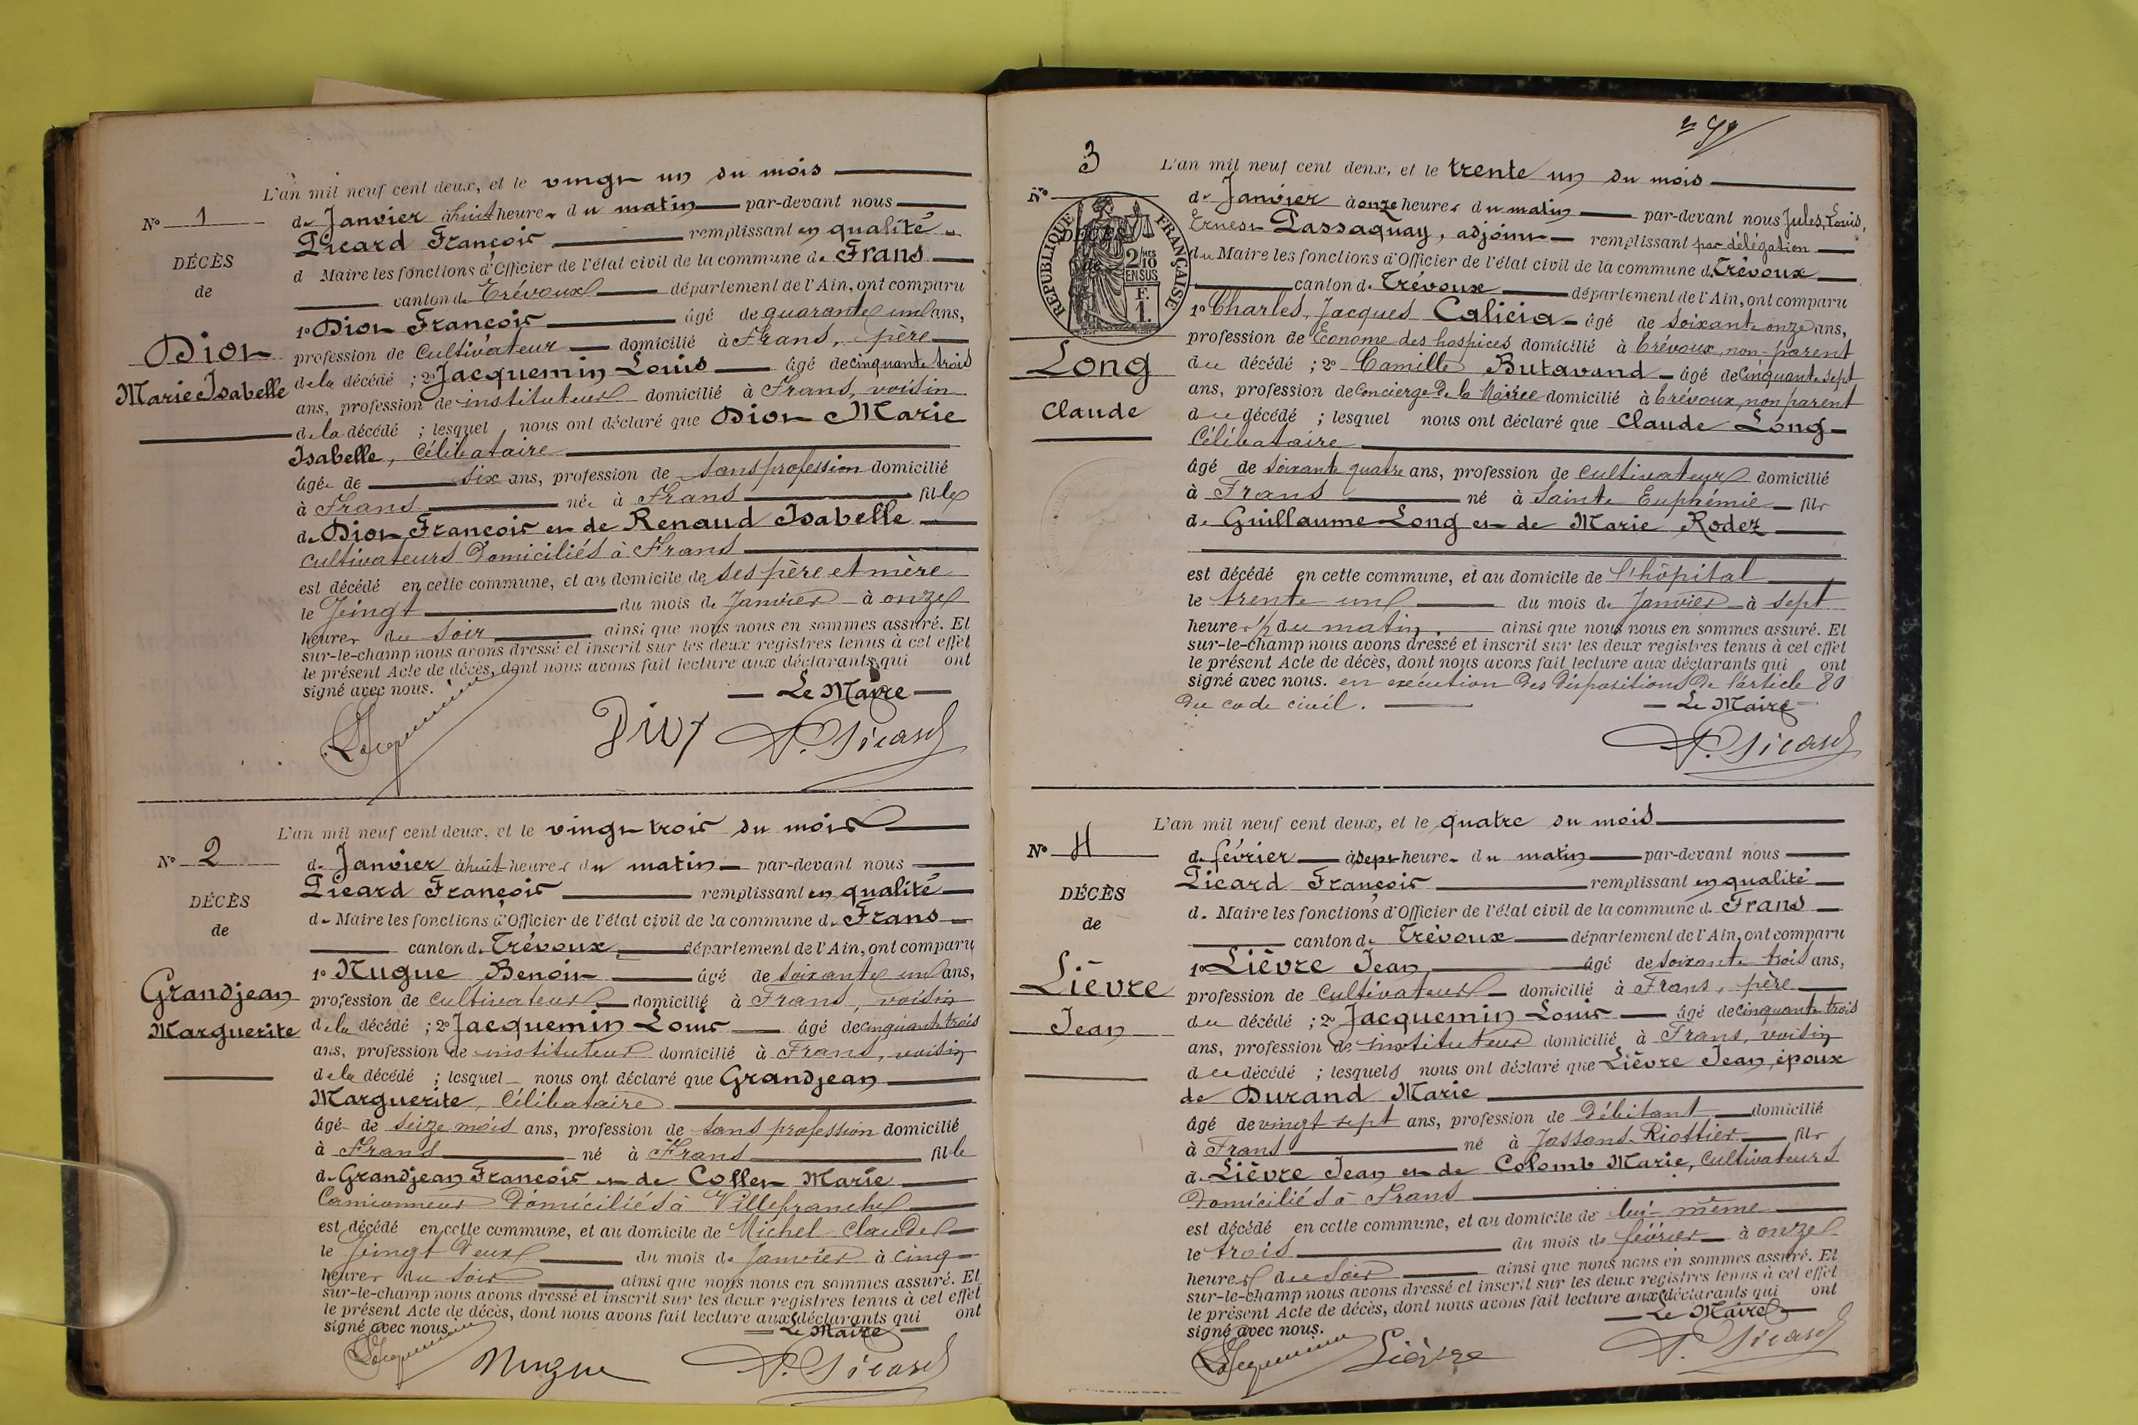 L'an mil neuf cent deux, et le vingt un du mois
N° 1
de Janvier à huit heures du matin par-devant nous
Picard François remplissant en qualité
DÉCÈS
d Maire les fonctions d'Officier de l'état civil de la commune de Frans
de
canton de Trévoux département de l'Ain, ont comparu
1° Dion François âgé de quarante un ans,
Dion
profession de cultivateur domicilié à Frans, père
de la décédé ; 2° Jacquemin Louis âgé de cinquante trois
Marie Isabelle
ans, profession de instituteur domicilié à Frans, voisin
de la décédé ; lesquel nous ont déclaré que Dion Marie
Isabelle, Célibataire
âgée de six ans, profession de sans profession domicilié
à Frans née à Frans fille
de Dion François et de Renaud Isabelle
cultivateurs domiciliés à Frans
est décédé en cette commune, et au domicile de ses père et mère
le Vingt du mois de Janvier à onze
heures du soir ainsi que nous nous en sommes assuré. Et
sur-le-champ nous avons dressé et inscrit sur les deux registres tenus à cet effet
le présent Acte de décès, dont nous avons fait lecture aux déclarants qui ont
signé avec nous. Le Maire
Jacquemin Dion F. Picard
L'an mil neuf cent deux, et le vingt trois du mois
N° 2
de Janvier à huit heures du matin par-devant nous
Picard François remplissant en qualité
DÉCÈS
de Maire les fonctions d'Officier de l'état civil de la commune de Frans
de
canton de Trévoux département de l'Ain, ont comparu
1° Nugue Benoit âgé de soixante un ans,
Grandjean
profession de cultivateur domicilié à Frans, voisin
Marguerite
de la décédé ; 2° Jacquemin Louis âgé de cinquante trois
ans, profession de instituteur domicilié à Frans, voisin
de la décédé ; lesquel nous ont déclaré que Grandjean
Marguerite, Célibataire
âgé de seize mois ans, profession de sans profession domicilié
à Frans né à Frans fille
de Grandjean François et de Collet Marie
Camionneur domiciliés à Villefranche
est décédé en cette commune, et au domicile de Michel Claude
le Vingt deux du mois de Janvier à cinq
heures du soir ainsi que nous nous en sommes assuré. Et
sur-le-champ nous avons dressé et inscrit sur les deux registres tenus à cet effet
le présent Acte de décès, dont nous avons fait lecture aux déclarants qui ont
signé avec nous. Le Maire
Jacquemin Nugue F. Picard
3
L'an mil neuf cent deux, et le trente un du mois
N°
de Janvier à onze heures du matin par-devant nous Jules, Louis,
Ernest Passaquay, adjoint remplissant par délégation
RÉPUBLIQUE FRANÇAISE
2/10 MES EN SUS
F. 1.
du Maire les fonctions d'Officier de l'état civil de la commune de Trévoux
canton de Trévoux département de l'Ain, ont comparu
1° Charles, Jacques Calicia âgé de soixante onze ans,
profession de Econome des hospices domicilié à Trévoux, non parent
Long
du décédé ; 2° Camille Butavand âgé de cinquante sept
ans, profession de Concierge de la Mairie domicilié à Trévoux, non parent
Claude
du décédé ; lesquel nous ont déclaré que Claude Long
Célibataire
âgé de soixante quatre ans, profession de cultivateur domicilié
à Frans né à Sainte Euphémie fils
de Guillaume Long et de Marie Rodez
est décédé en cette commune, et au domicile de l'hôpital
le trente un du mois de Janvier à sept
heures 1/2 du matin ainsi que nous nous en sommes assuré. Et
sur-le-champ nous avons dressé et inscrit sur les deux registres tenus à cet effet
le présent Acte de décès, dont nous avons fait lecture aux déclarants qui ont
signé avec nous. en exécution des dispositions de l'article 80
du code civil. Le Maire
F. Picard
L'an mil neuf cent deux, et le quatre du mois
N° 4
de février à sept heures du matin par-devant nous
Picard François remplissant en qualité
DÉCÈS
de Maire les fonctions d'Officier de l'état civil de la commune de Frans
de
canton de Trévoux département de l'Ain, ont comparu
1° Lièvre Jean âgé de soixante trois ans,
Lièvre
profession de Cultivateur domicilié à Frans, père
du décédé ; 2° Jacquemin Louis âgé de cinquante trois
Jean
ans, profession de instituteur domicilié à Frans, voisin
du décédé ; lesquels nous ont déclaré que Lièvre Jean, époux
de Durand Marie
âgé de vingt sept ans, profession de Débitant domicilié
à Frans né à Jassans-Riottier fils
de Lièvre Jean et de Colomb Marie, cultivateurs
domiciliés à Frans
est décédé en cette commune, et au domicile de lui-même
le trois du mois de février à onze
heures du soir ainsi que nous nous en sommes assuré. Et
sur-le-champ nous avons dressé et inscrit sur les deux registres tenus à cet effet
le présent Acte de décès, dont nous avons fait lecture aux déclarants qui ont
signé avec nous. Le Maire
Jacquemin Lièvre F. Picard